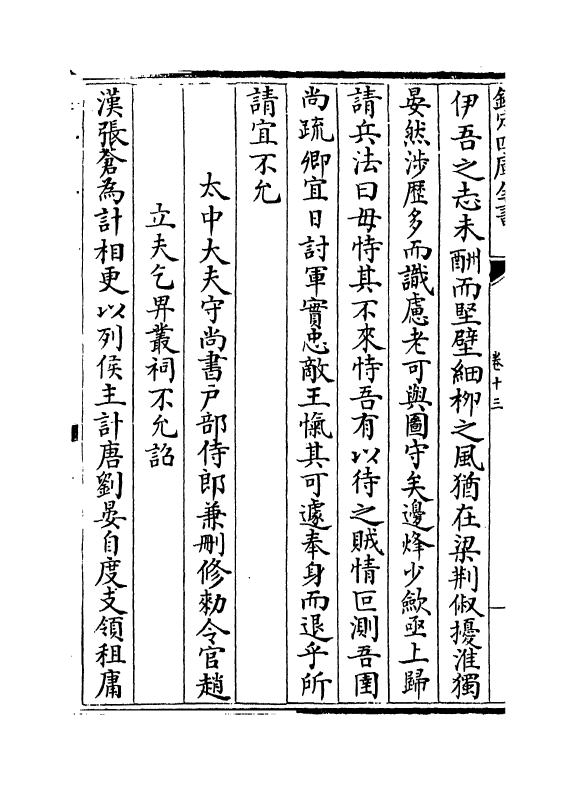 欽定四庫全書
卷十三
伊吾之志未酬而堅壁細栁之風猶在梁荆俶擾淮獨
晏然渉歴多而識慮老可與圖守矣邊烽少歛亟上歸
請兵法曰毋恃其不來恃吾有以待之賊情叵測吾圉
尚疏卿宜日討軍實忠敵王愾其可遽奉身而退乎所
請宜不允
太中大夫守尚書户部侍郎兼刪修勑令官趙
立夫乞畀叢祠不允詔
漢張蒼為計相更以列侯主計唐劉晏自度支領租庸